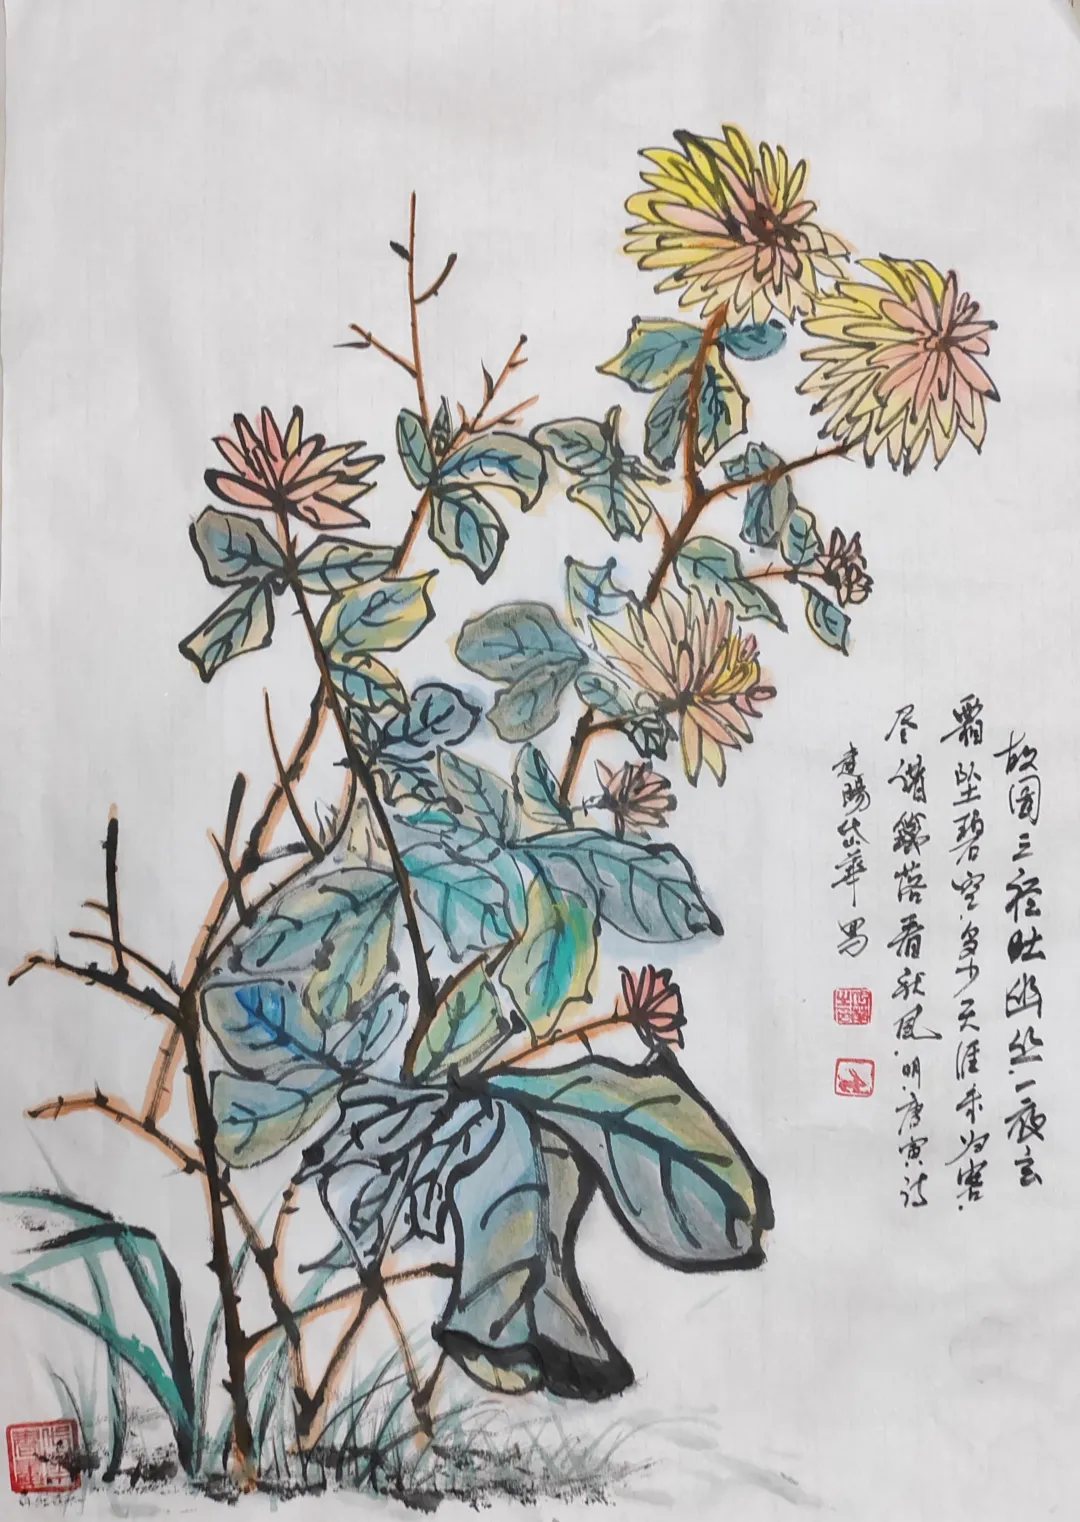 故园三径吐幽丛.一夜玄
霜坠碧空.多少天涯未归客.
尽借篱落看秋风.明唐寅诗
建陽岱華写